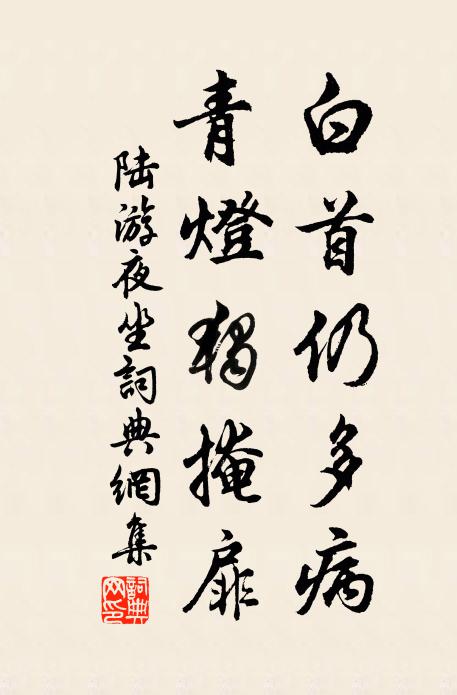 白首仍多病
青燈獨掩扉
陸游夜坐詞典網集
詞典网印